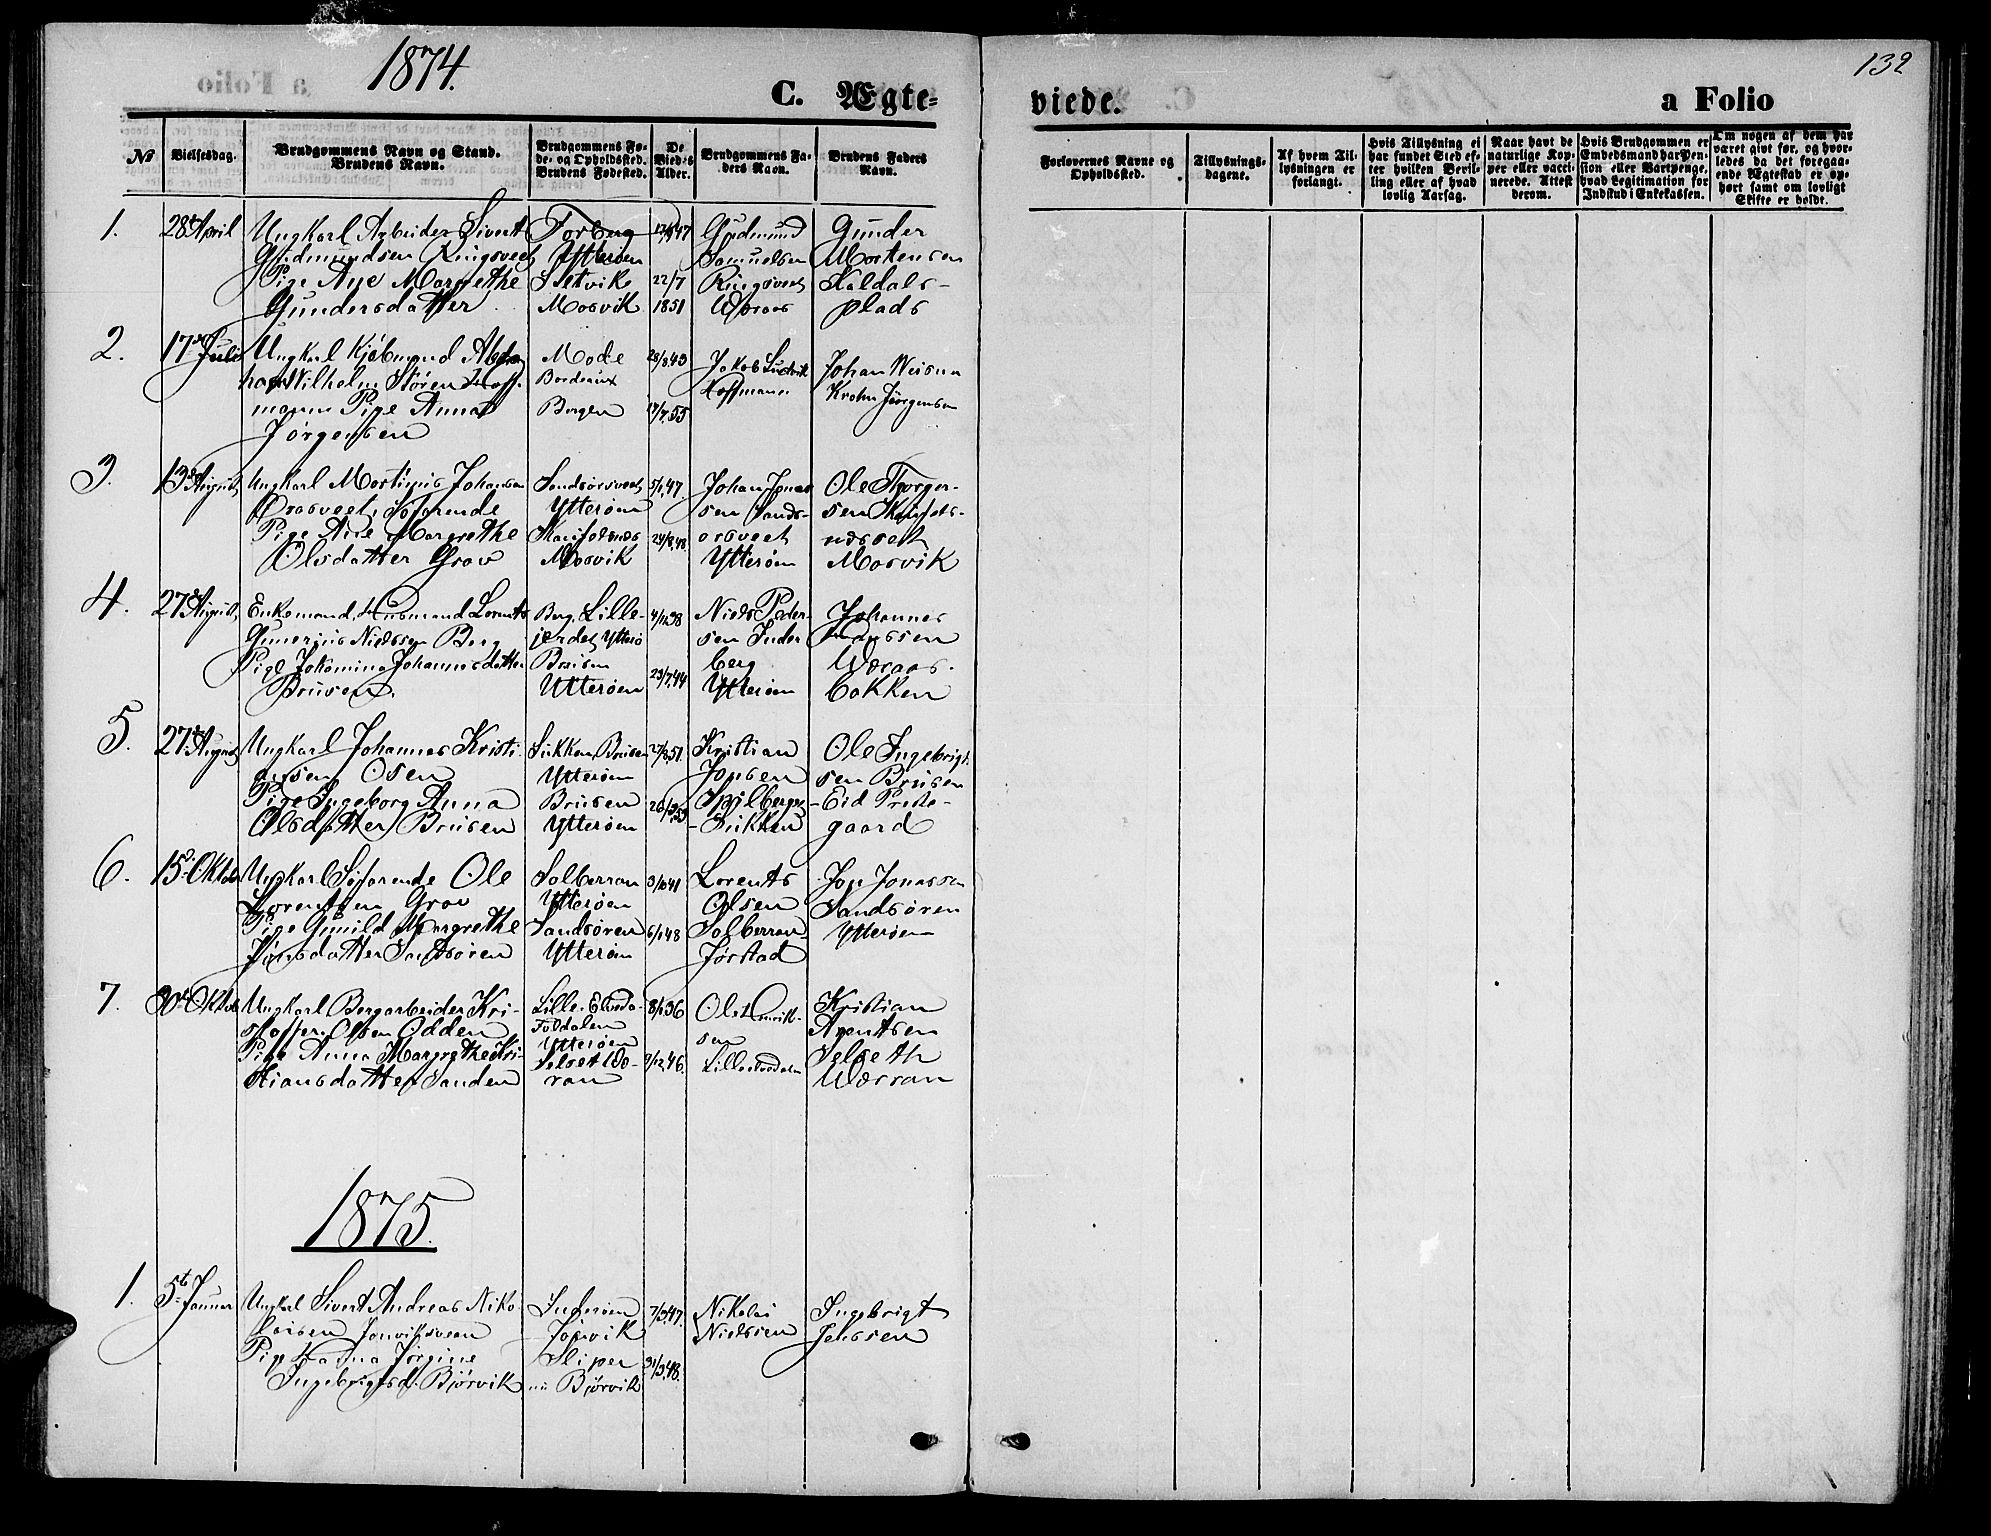 1874.
132
C. Ægte=
viede.
a Folio
№
Vielsesdag.
Brudgommens Navn og Stand.
Brudens Navn.
Brudgommens Fø-
de- og Opholdssted.
Brudens Fødested.
De
Vied's
Alder.
Brudgommens Fa-
ders Navn.
Brudens Faders
Navn.
Forlovernes Navne og
Opholdssted.
Tillysnings-
dagene.
Af hvem Til-
lysningen er
forlangt.
Hvis Tillysning ei
har fundet Sted ef-
ter hvilken Bevil-
ling eller af hvad
lovlig Aarsag.
Naar havt de
naturlige Kop-
per eller vacci-
nerede. Attest
derom.
Hvis Brudgommen er
Embedsmand har Pen-
sion eller Vartpenge,
hvad Legitimation for
Indskud i Enkekassen.
Om nogen af dem har
været gift før, og hvor-
ledes da det foregaa-
ende Ægteskab er op-
hørt samt om lovligt
Skifte er holdt.
1. 28 April
Ungkarl Arbeider Sivert
Gudmundsen Ringsveet
Pige Ane Margrethe
Gundersdatter
Forberg
Ytterøen
Saltvik
Mosvik
22/7
1851
Gudmund
Samuelsen
Ringsveet
Gunder
Mortensen
Kaldals-
plads
2. 17 Juli
Ungkarl Kjøbmand Abra
ham Wilhelm Støren Hoff-
mann Pige Anna
Jørgensen
Mode
Bordeaux
Bergen
28/8.43
17/7.55
Jakob Ludvik
Hoffmann
Johan
Krohn Jørgensen
3. 13 August
Ungkarl Mortinus Johansen
Søfarende
Pige Ane Margrethe
Olsdatter Grav
Sandsørsveet
Ytterøen
Mosvik
5/1.47.
24/8.48.
Johan Jonas
sen Sands-
ørsveet
Ytterøen
Ole Thorger-
sen
Mosvik
4. 27 August
Enkemand, Husmand Lorents
Gunerius Nielssen Berg
Pige Jokomina Johannesdatter
Brusen.
Berg, Lille-
jerdet, Ytterø
Brusen
Ytterøen
4/11.38
29/7.44
Niels Peder-
sen Inder
berg
Ytterøen
Johannes
Hanssen
Bakken
5. 27 August
Ungkarl Johannes Kristi-
ansen Osen
Pige Ingeborg Anna
Olsdatter Brusen
Brusen
Ytterøen
Brusen
Ytterøen
Kristian
Jonsen
Ole Ingebrigt-
sen Brusen
Eid Preste-
gaard
6. 15 Oktob
Ungkarl Søfarende Ole
Lorentsen Grav
Pige Gunild Margrethe
Jonsdatter Sandsøren
Solberran
Ytterøen
Sandsøren
Ytterøen
3/10.41
6/1.48
Lorents
Olsen
Solberran
Jørstad
Jon Jonassen
Sandsøren
Ytterøen
7. 30 Oktob
Ungkarl Bergarbeider Kri-
stoffer Olsen Odden
Pige Anna Margrethe Kri-
stiansdatter Sanden
Lille-Elveda-
Foldalen
Ytterøen
8/1.36
9/12.46.
Ole Henrik-
sen
Lilleelvedalen
Kristian
Arentsen
Selseth
Werran
1875.
1. 5t Januar
Ungkarl Sivert Andreas Niko-
laisen Jonviksveen
Pige Hanna Jørgine
Ingebrigtsd. Bjørvik
Inderøen
Jonvik
Sliper
Bjørvik
7/3.47.
31/3.48.
Nikolai
Nielssen
Ingebrigt
Jenssen